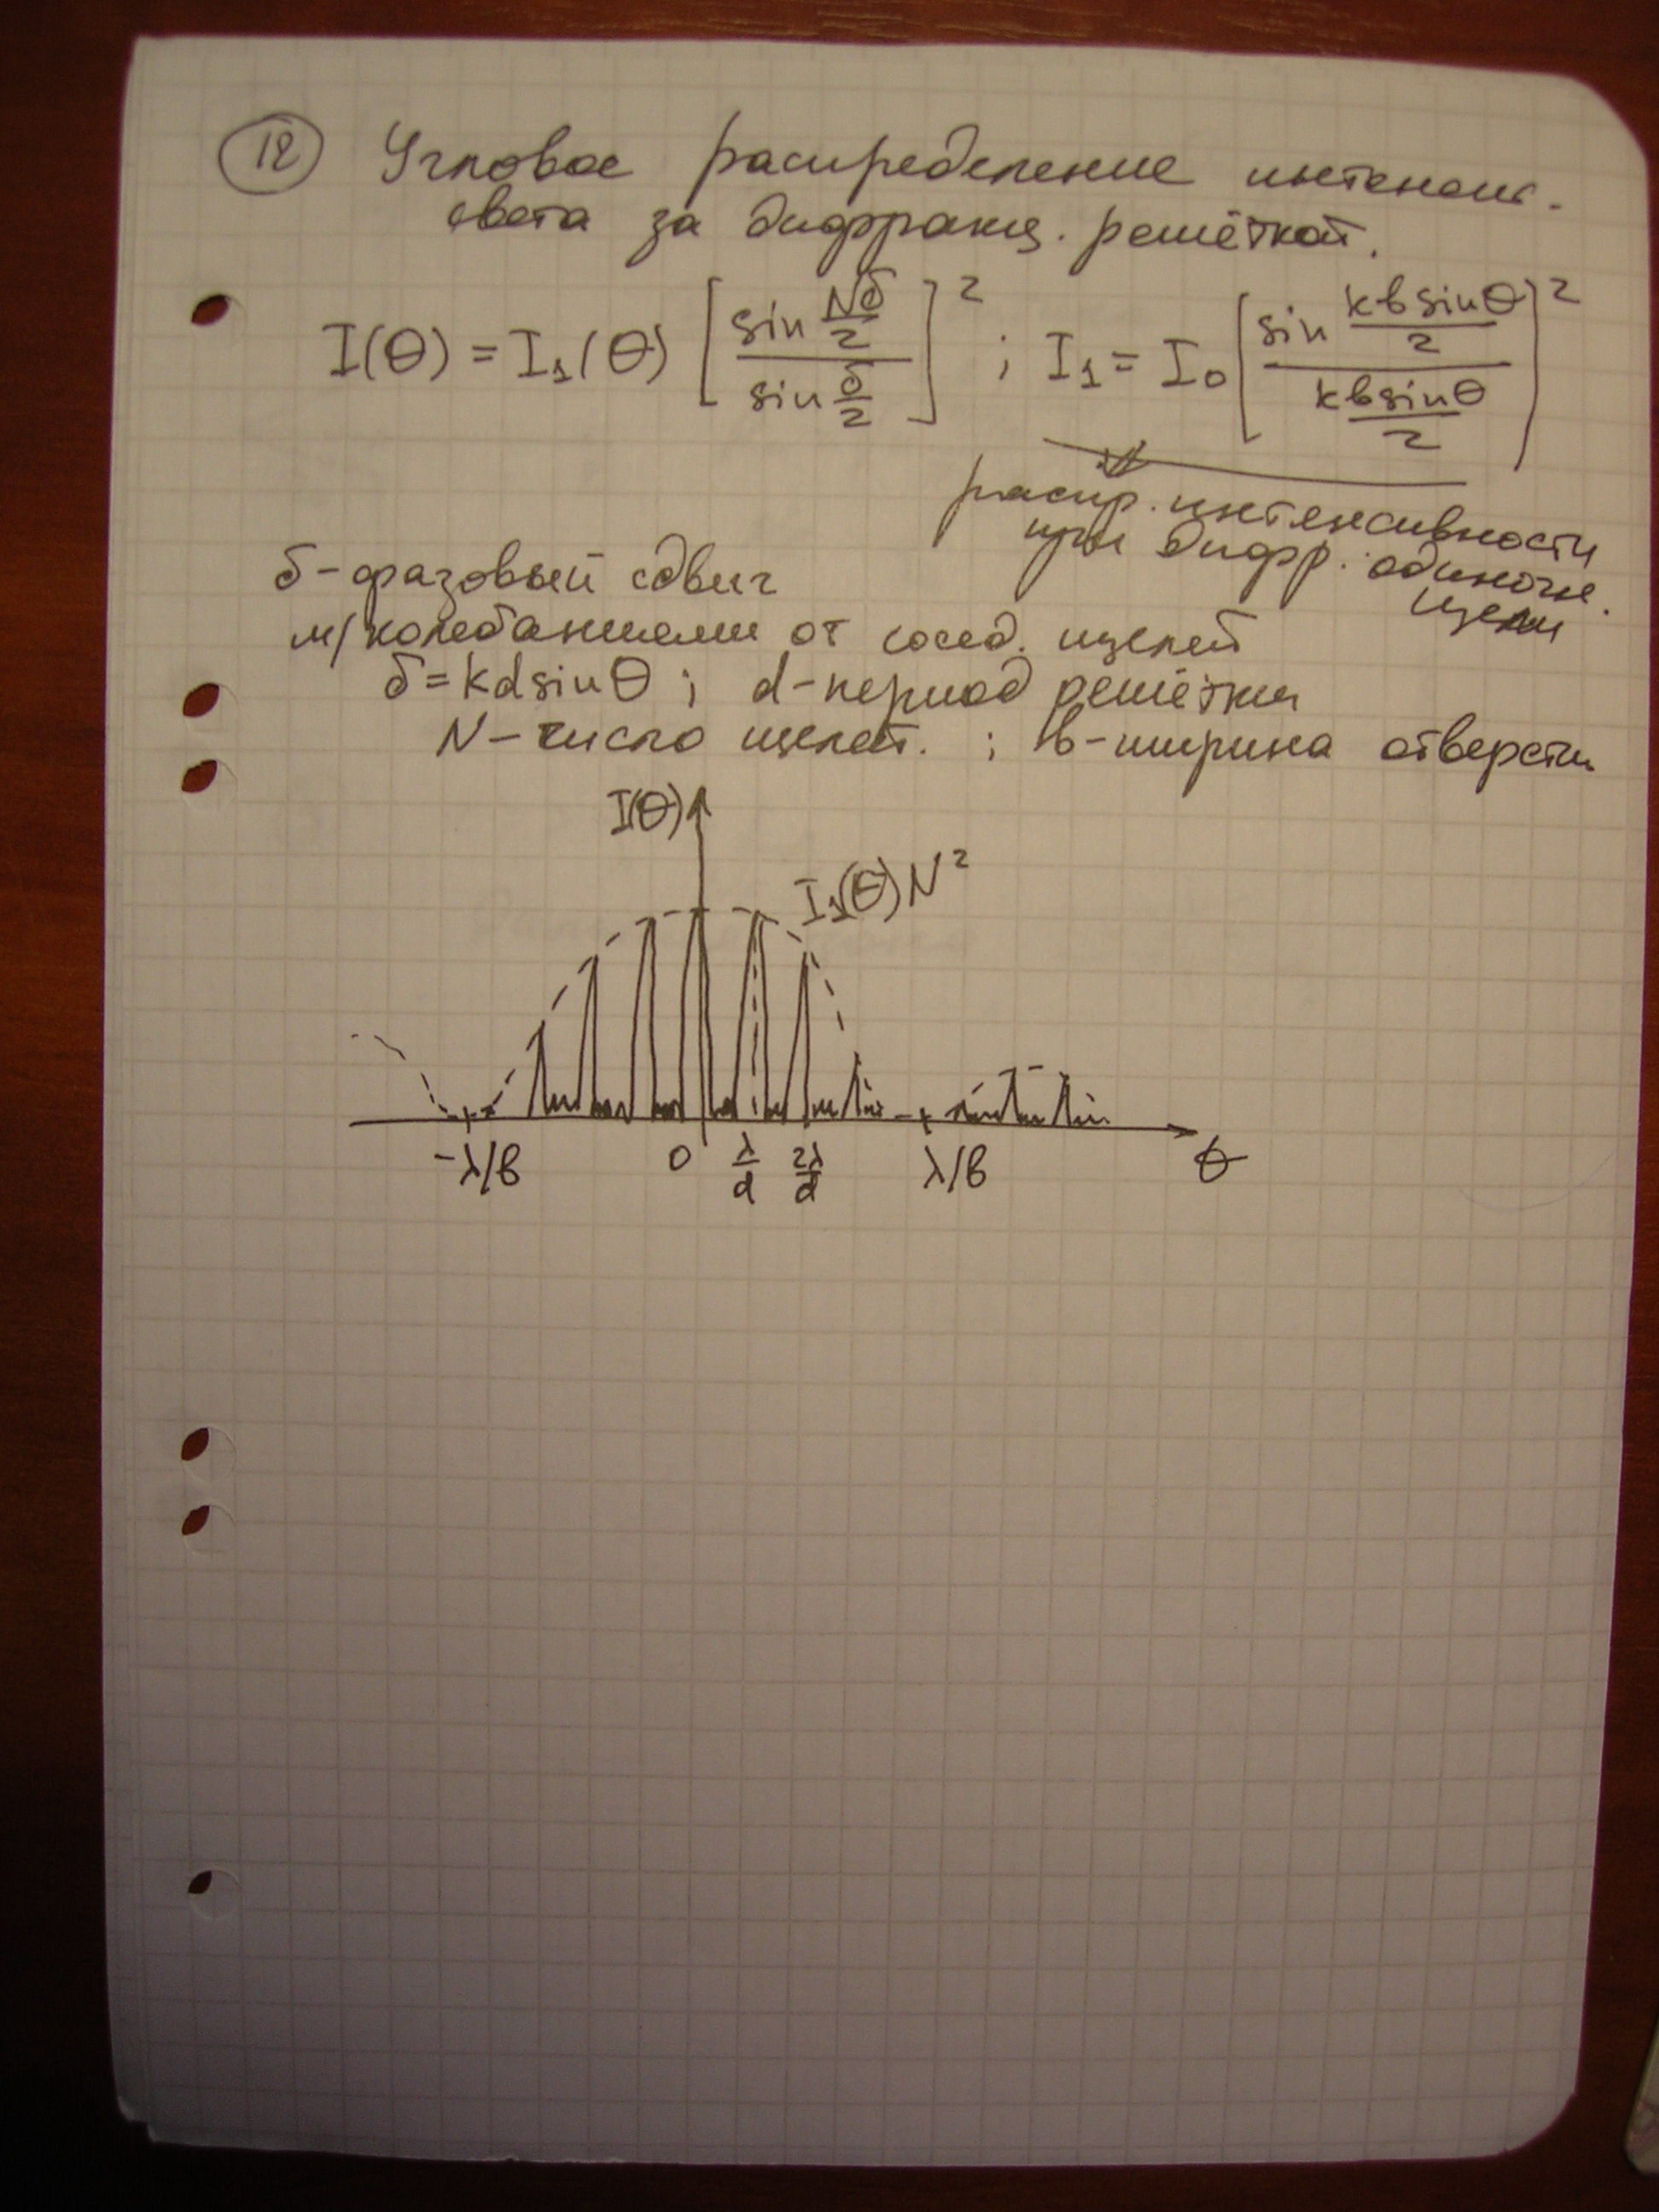 12 Угловое распределение интенсив.
света за дифракц. решёткой.
I(θ) = I₁(θ) [sin Nδ/2 / sin δ/2]² ; I₁ = I₀ [sin kbsinθ/2 / kbsinθ/2]²
распр. интенсивности
при дифр. одиночн.
щели
δ - фазовый сдвиг
м/колебаниями от сосед. щелей
δ = kd sinθ ; d - период решётки
N - число щелей. ; b - ширина отверсти
I(θ)
I₁(θ)N²
-λ/b 0 λ/d 2λ/d λ/b θ